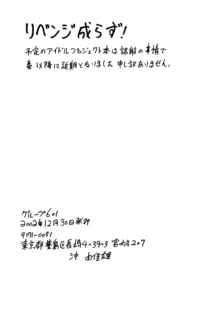 リベンジ成らず！
予定のアイドルプロジェクト本は諸般の事情で
春以降に延期となりました 申し訳ありません。
グループ601
2002年12月30日発行
東京都豊島区長崎4-39-3 宮内207
沖 由佳雄